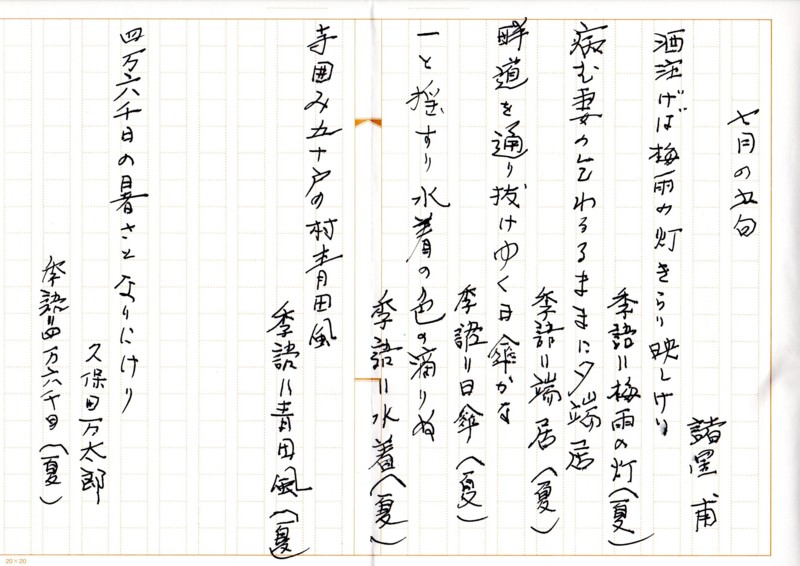 七月の五句
諸星 甫
酒注げば梅雨の灯きらり映しけり
季語=梅雨の灯(夏)
病む妻の乞わるるままに夕端居
季語=端居(夏)
畔道を通り抜けゆく日傘かな
季語=日傘(夏)
一と揺すり水着の色の滴りぬ
季語=水着(夏)
寺囲み五十戸の村青田風
季語=青田風(夏)
四万六千日の暑さとなりにけり
久保田万太郎
季語=四万六千日(夏)
20×20